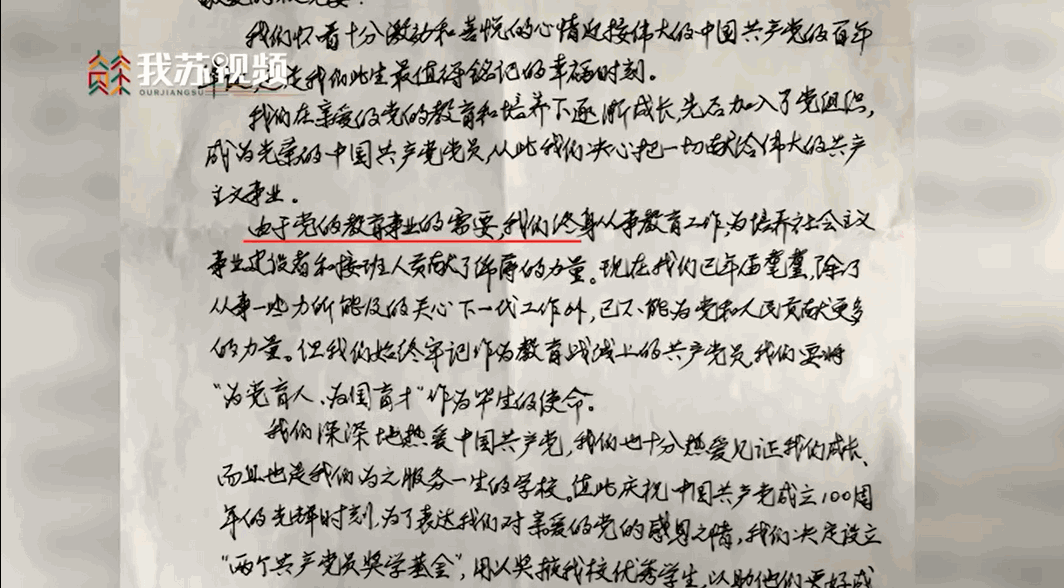 我们怀着十分激动和喜悦的心情迎接伟大的中国共产党的百年
我苏视频
OURJIANGSU
是我们此生最值得铭记的幸福时刻。
我们在亲爱的党的教育和培养下逐渐成长,先后加入了党组织,
成为光荣的中国共产党党员,从此我们决心把一切献给伟大的共产
主义事业。
由于党的教育事业的需要,我们终身从事教育工作,为培养社会主义
事业建设者和接班人贡献了绵薄的力量。现在我们已年届耄耋,除了
从事一些力所能及的关心下一代工作外,已不能为党和人民贡献更多
的力量。但我们始终牢记作为教育战线上的共产党员,我们要将
“为党育人、为国育才”作为毕生的使命。
我们深深地热爱中国共产党,我们也十分热爱见证我们成长、
而且也是我们为之服务一生的学校。值此庆祝中国共产党成立100周
年的光辉时刻,为了表达我们对亲爱的党的感恩之情,我们决定设立
“两个共产党员奖学基金”,用以奖掖我校优秀学生,以助他们更好成